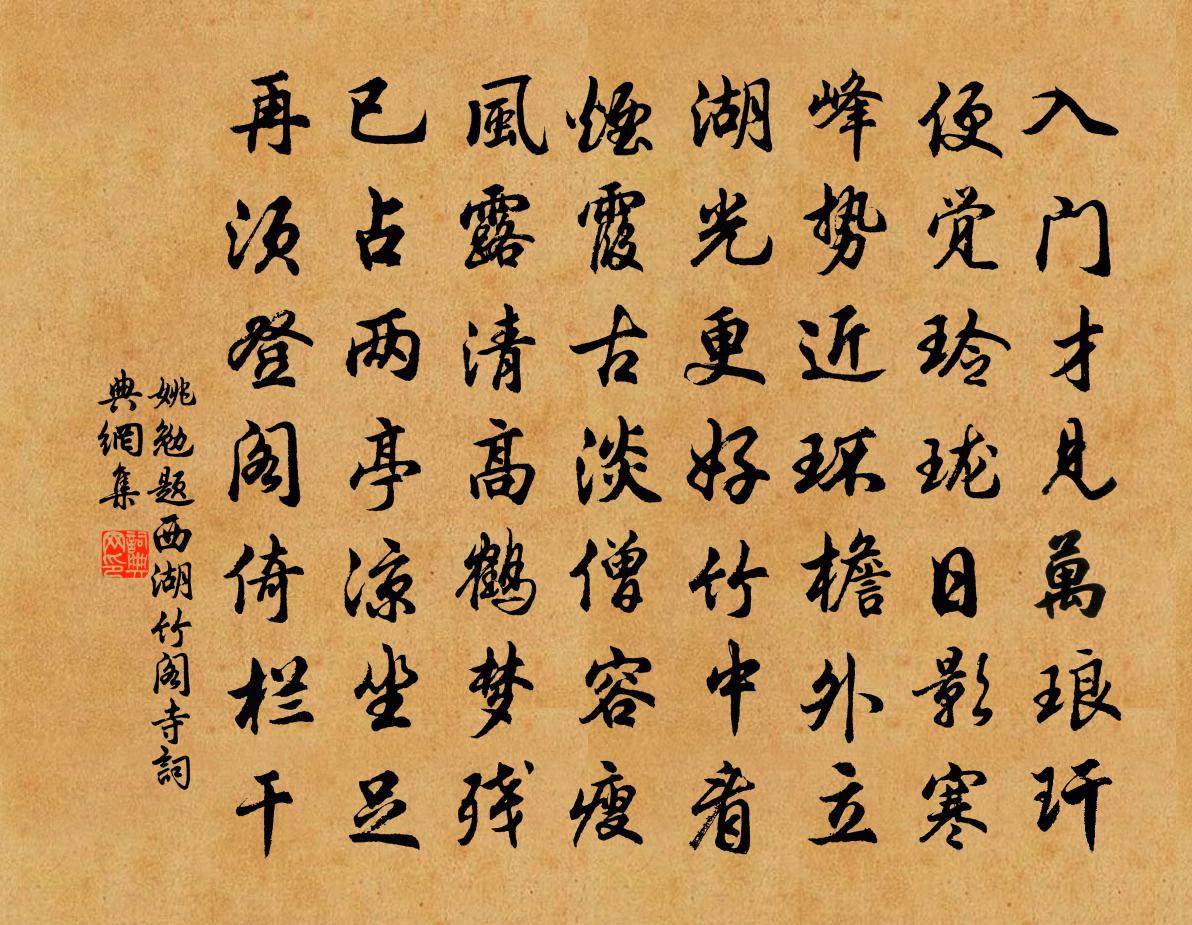 入门才见萬琅玕
便觉玲珑日影寒
峰势近环檐外立
湖光更好竹中看
煙霞古淡僧容瘦
風露清高鹤梦残
已占两亭凉坐足
再须登阁倚栏干
姚勉题西湖竹阁寺詞
典網集
詞典
网印